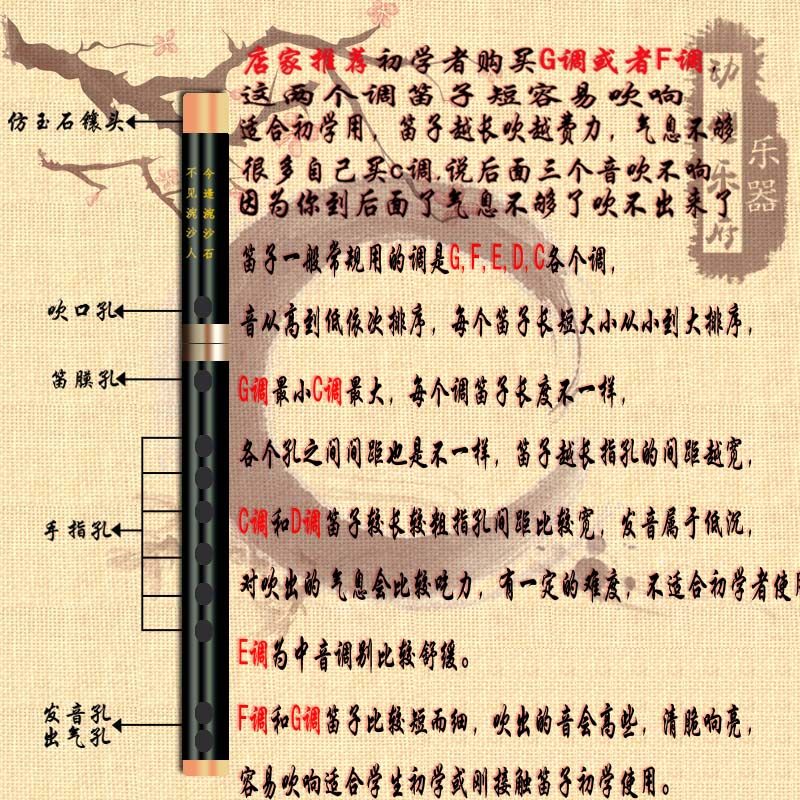 店家推荐初学者购买G调或者F调
这两个调笛子短容易吹响
适合初学用，笛子越长吹越费力，气息不够
很多自己买c调,说后面三个音吹不响
因为你到后面了气息不够了吹不出来了
笛子一般常规用的调是G,F,E,D,C各个调，
音从高到低依次排序，每个笛子长短大小从小到大排序，
G调最小C调最大，每个调笛子长度不一样，
各个孔之间间距也是不一样，笛子越长指孔的间距越宽，
C调和D调笛子较长较粗指孔间距比较宽，发音属于低沉，
对吹出的气息会比较吃力，有一定的难度，不适合初学者使用
E调为中音调别比较舒缓。
F调和G调笛子比较短而细，吹出的音会高些，清脆响亮，
容易吹响适合学生初学或刚接触笛子初学使用。
仿玉石镶头
今逢浣沙石
不见浣沙人
吹口孔
笛膜孔
手指孔
发音孔
出气孔
乐器